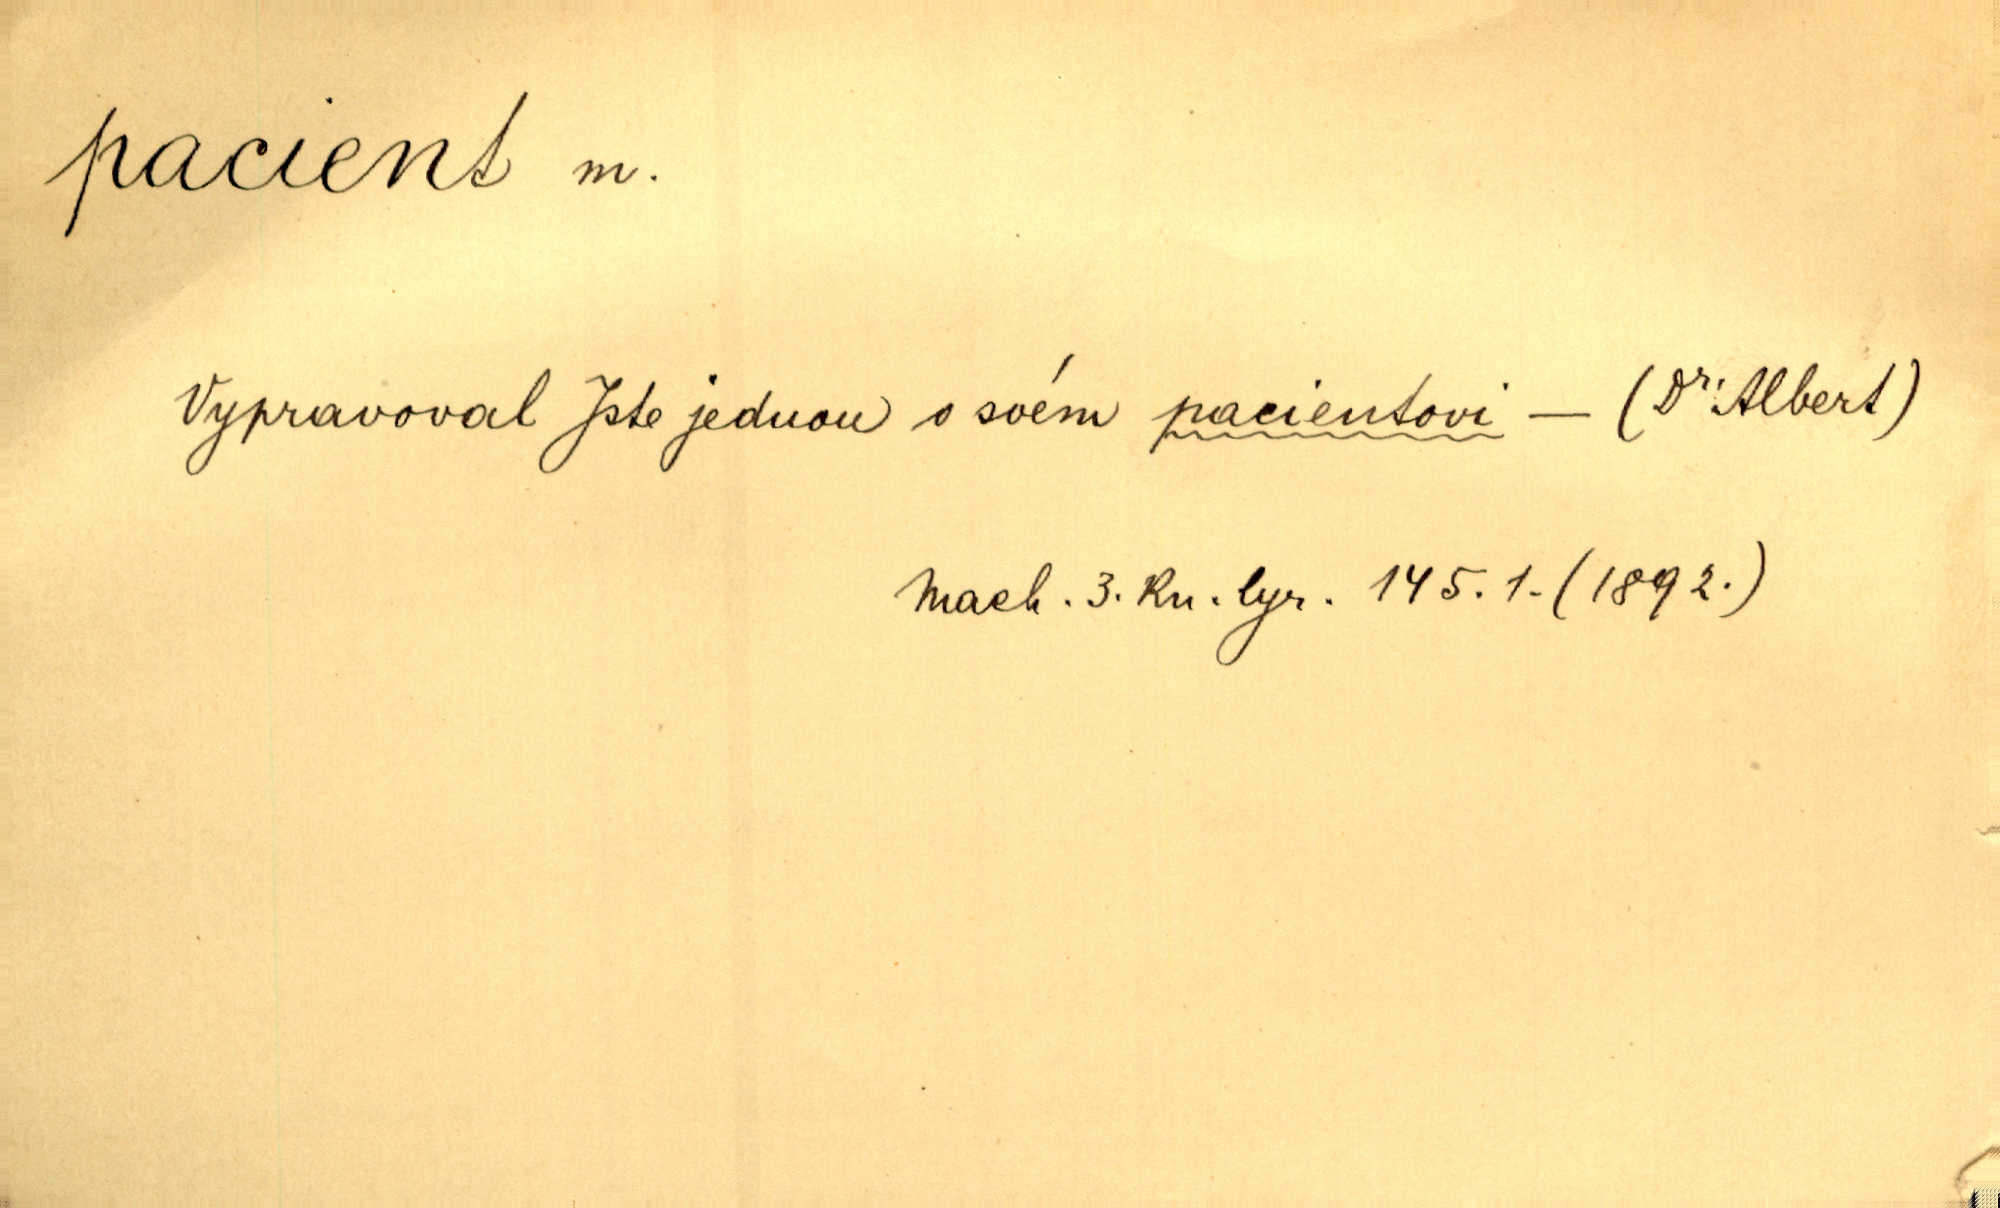 pacient m.
Vypravoval Jste jednou o svém pacientovi — (Dr. Albert)
Mach. 3. Kn. lyr. 145. 1. (1892.)